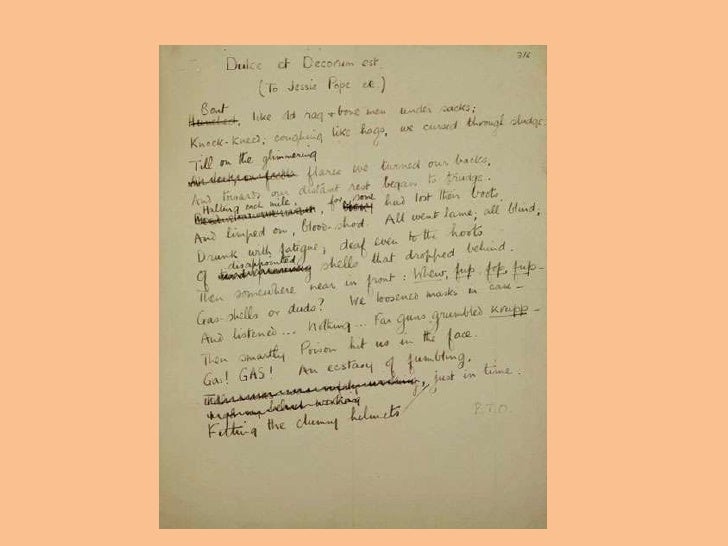 316
Dulce et Decorum est.
(To Jessie Pope etc)
Bent
Hunched, like old rag + bone men under sacks;
Knock-kneed, coughing like hags, we cursed through sludge.
Till on the glimmering
flares we turned our backs,
And towards our distant rest began to trudge.
Halting each mile,
, for some had lost their boots.
And limped on, blood-shod. All went lame; all blind;
Drunk with fatigue; deaf even to the hoots
disappointed
Of shells that dropped behind.
Then somewhere near in front: Whew, fup, fop, fup—
Gas-shells or duds? We loosened masks in case—
And listened... Nothing... Far guns grumbled Krupp—
Then smartly Poison hit us in the face.
Gas! GAS! An ecstasy of fumbling,
, just in time.
Fitting the clumsy helmets
P.T.O.